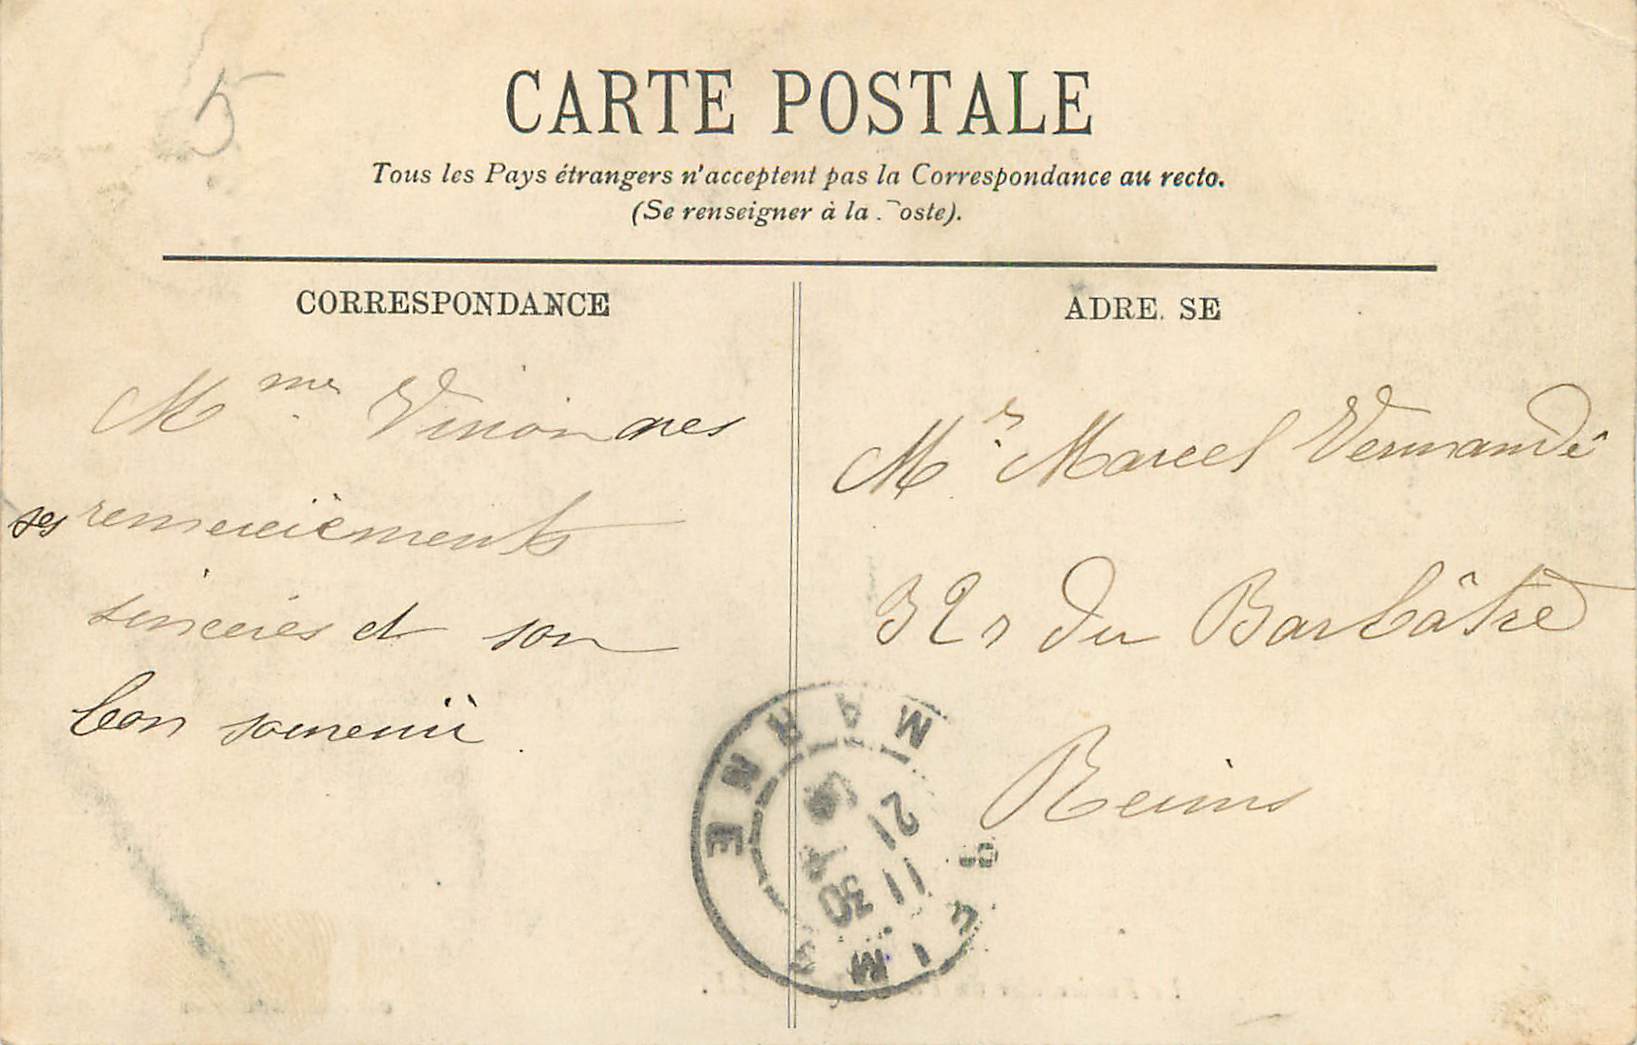 5
CARTE POSTALE
Tous les Pays étrangers n'acceptent pas la Correspondance au recto.
(Se renseigner à la oste).
CORRESPONDANCE
ADRE. SE
Mme
ses remerciements
sincères et son
bon souvenir.
Mr Marcel Vermandé
32 r du Barbâtre
Reims
REIMS
MARNE
11 30
21